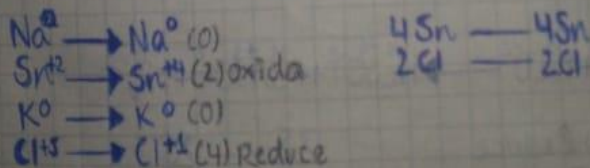 Na⁰ → Na⁰ (0)
Sn⁺² → Sn⁺⁴ (2) oxida
K⁰ → K⁰ (0)
Cl⁺⁵ → Cl⁺¹ (4) Reduce
4Sn — 4Sn
2Cl — 2Cl